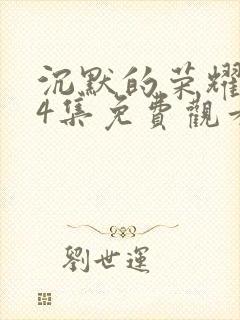 沉默的荣耀
4集免費觀
劉世運